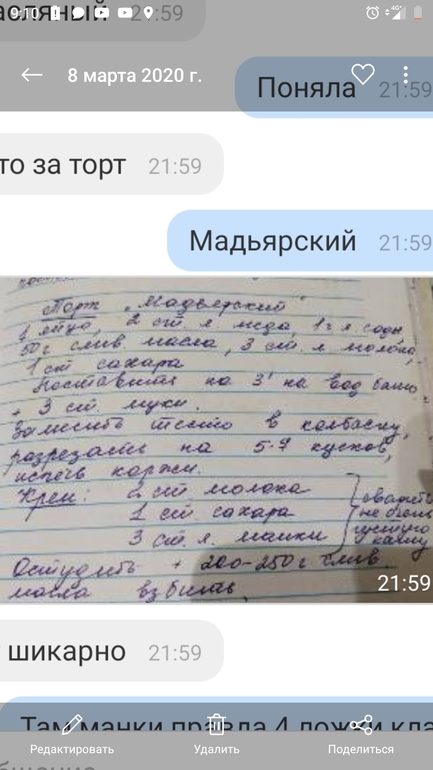 асляный 21:59
9:10
4G+
8 марта 2020 г.
Поняла 21:59
то за торт 21:59
Мадьярский 21:59
Торт "Мадьярский"
1 яйцо, 2 ст. л меда, 1 ч л соды
50 г слив масла, 3 ст. л молока,
1 ст сахара
Поставить на 3' на вод баню
+ 3 ст. муки.
Замесить тесто в колбаску,
разрезать на 5-7 кусков,
испечь коржи.
Крем: 2 ст. молока
1 ст. сахара
3 ст. л. манки
сварить
не очень
густую
кашу
Остудить + 200-250 г слив.
масла взбить.
21:59
шикарно 21:59
Там манки правда 4 ложки кла
Редактировать Удалить Поделиться
бщение